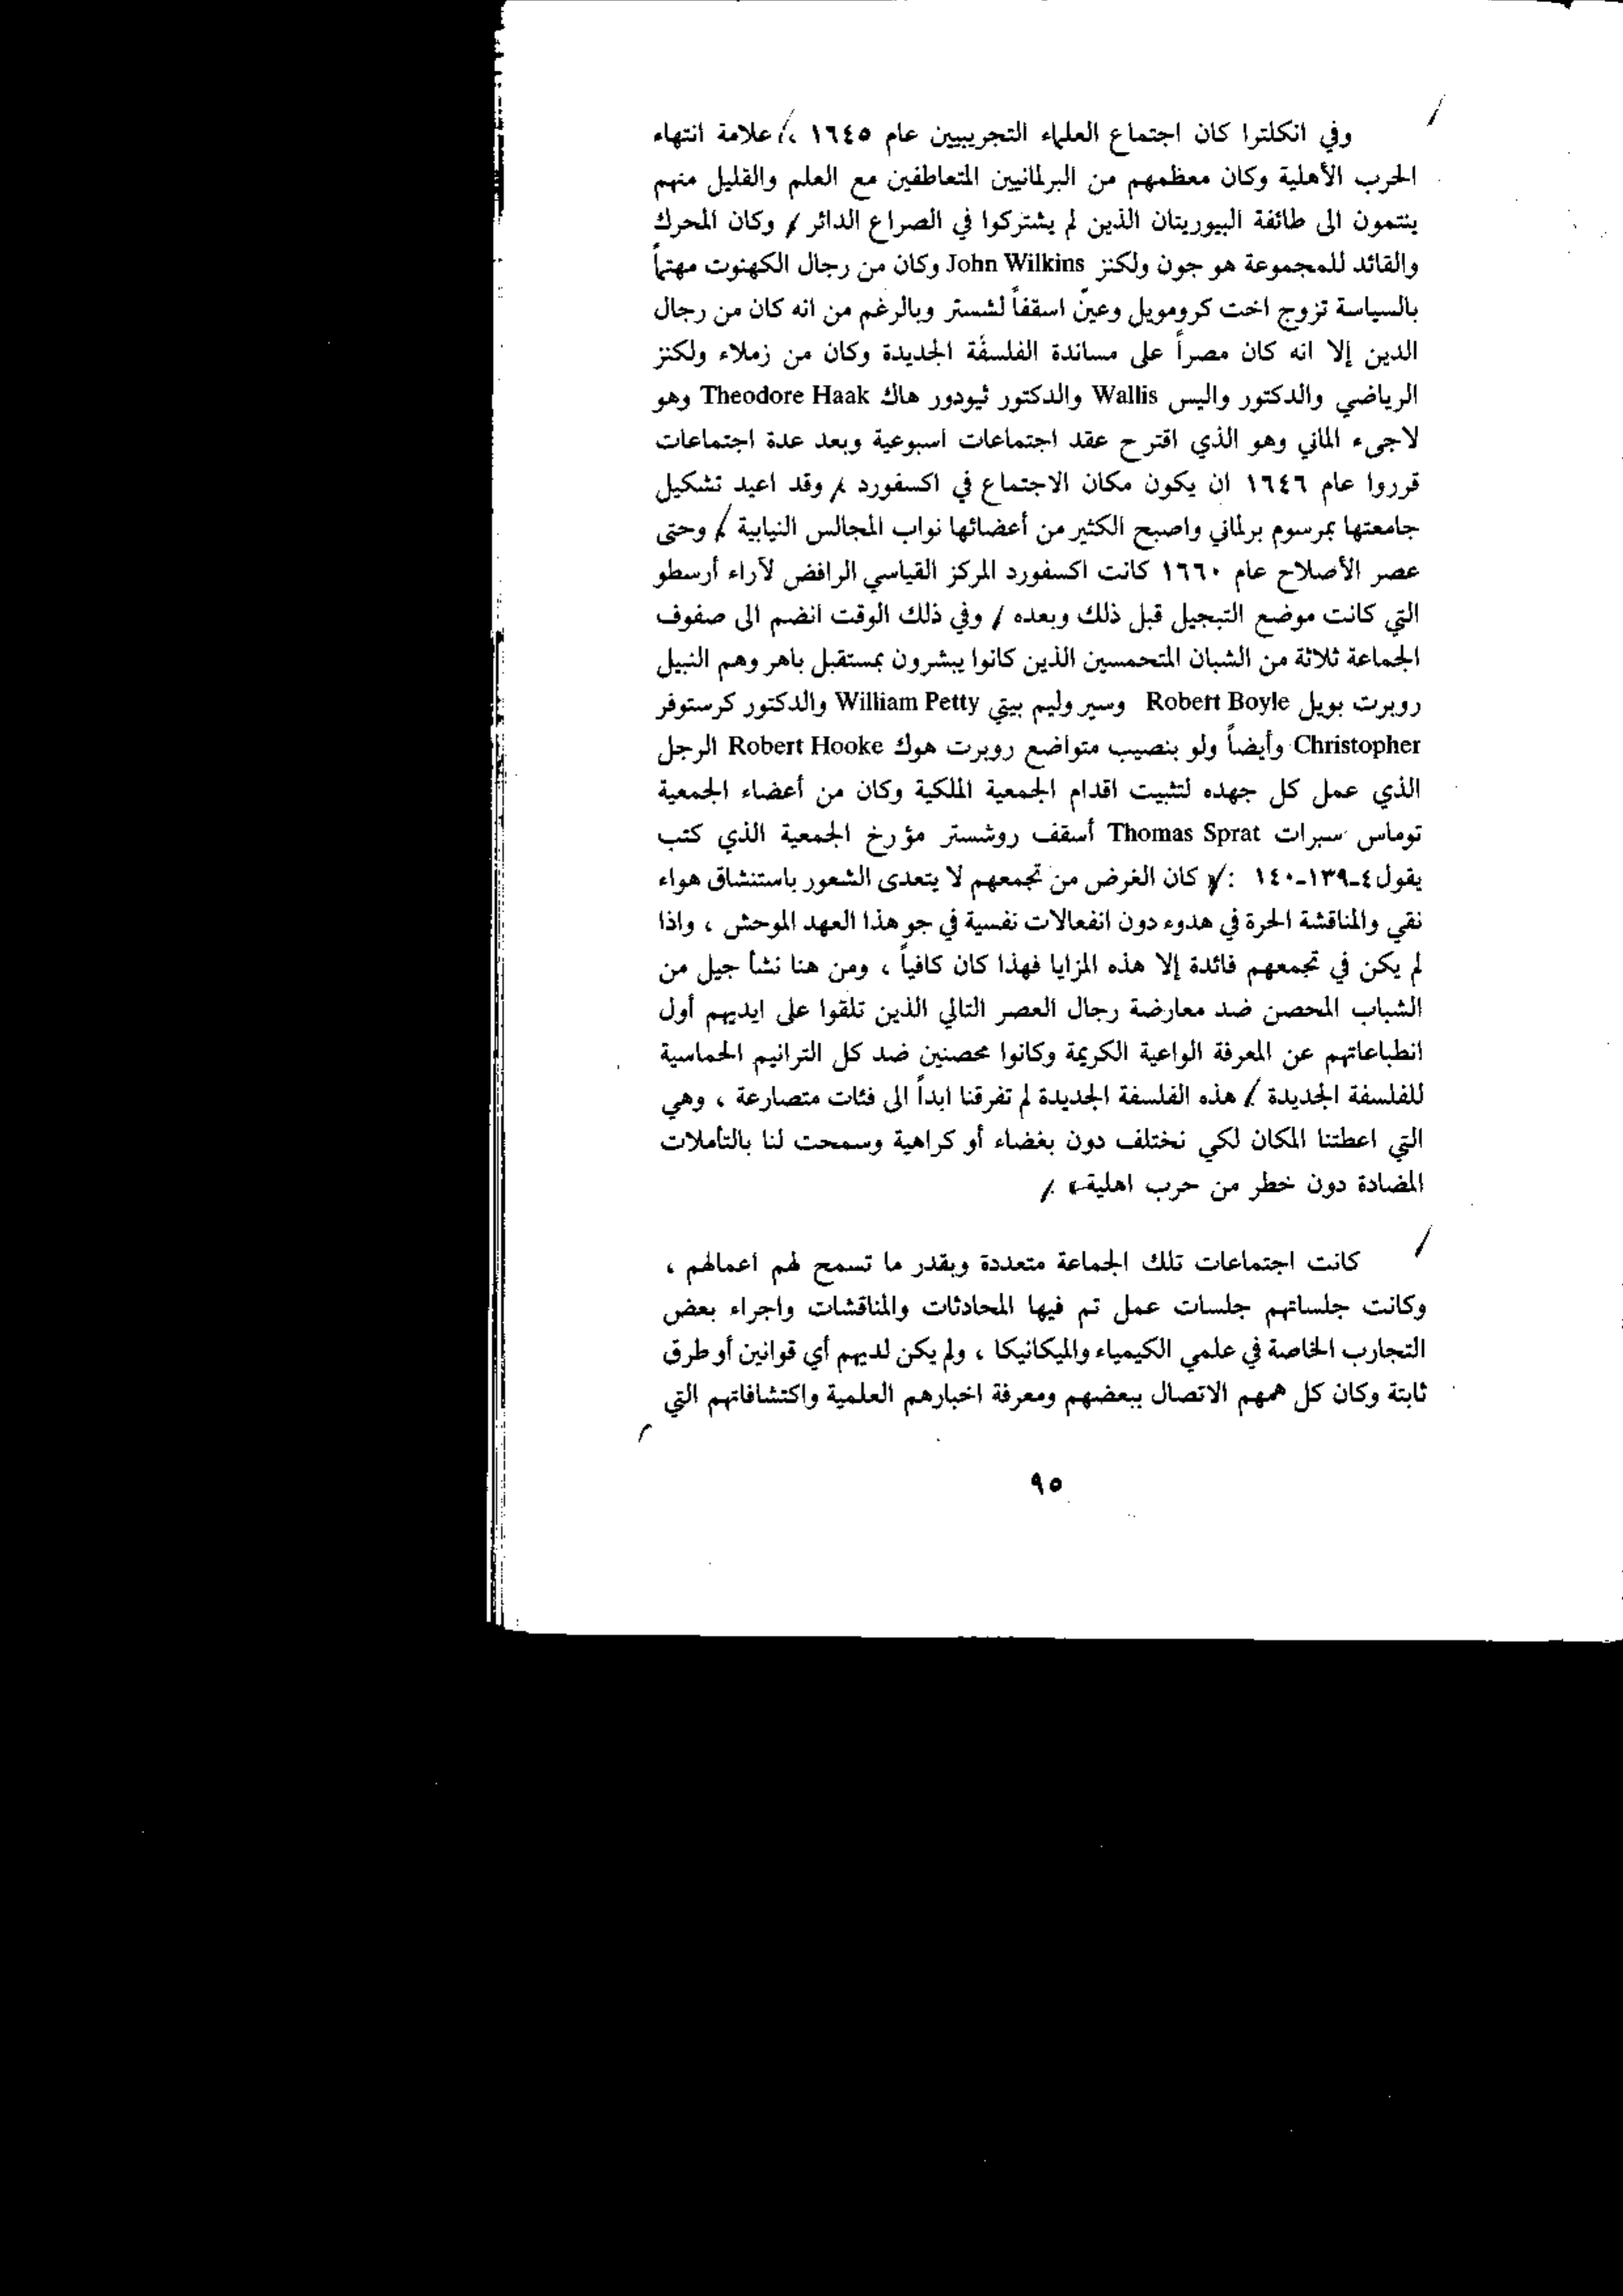 وفي انكلترا كان اجتماع العلماء التجريبيين عام ١٦٤٥ ، علامة انتهاء
الحرب الأهلية وكان معظمهم من البرلمانيين المتعاطفين مع العلم والقليل منهم
ينتمون الى طائفة البيوريتان الذين لم يشتركوا في الصراع الدائر / وكان المحرك
والقائد للمجموعة هو جون ولكنز John Wilkins وكان من رجال الكهنوت مهتماً
بالسياسة تزوج اخت كرومويل وعينّ اسقفاً لشستر وبالرغم من انه كان من رجال
الدين إلا انه كان مصراً على مساندة الفلسفة الجديدة وكان من زملاء ولكنز
الرياضي والدكتور واليس Wallis والدكتور ثيودور هاك Theodore Haak وهو
لاجىء الماني وهو الذي اقترح عقد اجتماعات اسبوعية وبعد عدة اجتماعات
قرروا عام ١٦٤٦ ان يكون مكان الاجتماع في اكسفورد . وقد اعيد تشكيل
جامعتها بمرسوم برلماني واصبح الكثير من أعضائها نواب المجالس النيابية . وحتى
عصر الأصلاح عام ١٦٦٠ كانت اكسفورد المركز القياسي الرافض لآراء أرسطو
التي كانت موضع التبجيل قبل ذلك وبعده / وفي ذلك الوقت انضم الى صفوف
الجماعة ثلاثة من الشبان المتحمسين الذين كانوا يبشرون بمستقبل باهر وهم النبيل
روبرت بويل Robert Boyle وسير وليم بيتي William Petty والدكتور كرستوفر
Christopher وأيضاً ولو بنصيب متواضع روبرت هوك Robert Hooke الرجل
الذي عمل كل جهده لتثبيت اقدام الجمعية الملكية وكان من أعضاء الجمعية
توماس سبرات Thomas Sprat أسقف روشستر مؤرخ الجمعية الذي كتب
يقول ٤-١٣٩-١٤٠ : كان الغرض من تجمعهم لا يتعدى الشعور باستنشاق هواء
نقي والمناقشة الحرة في هدوء دون انفعالات نفسية في جو هذا العهد الموحش ، واذا
لم يكن في تجمعهم فائدة إلا هذه المزايا فهذا كان كافياً ، ومن هنا نشأ جيل من
الشباب المحصن ضد معارضة رجال العصر التالي الذين تلقوا على ايديهم أول
انطباعاتهم عن المعرفة الواعية الكريمة وكانوا محصنين ضد كل الترانيم الحماسية
للفلسفة الجديدة . هذه الفلسفة الجديدة لم تفرقنا ابداً الى فئات متصارعة ، وهي
التي اعطتنا المكان لكي نختلف دون بغضاء أو كراهية وسمحت لنا بالتأملات
المضادة دون خطر من حرب اهلية» .
كانت اجتماعات تلك الجماعة متعددة وبقدر ما تسمح لهم اعمالهم ،
وكانت جلساتهم جلسات عمل تم فيها المحادثات والمناقشات واجراء بعض
التجارب الخاصة في علمي الكيمياء والميكانيكا ، ولم يكن لديهم أي قوانين أو طرق
ثابتة وكان كل همهم الاتصال ببعضهم ومعرفة اخبارهم العلمية واكتشافاتهم التي
٩٥